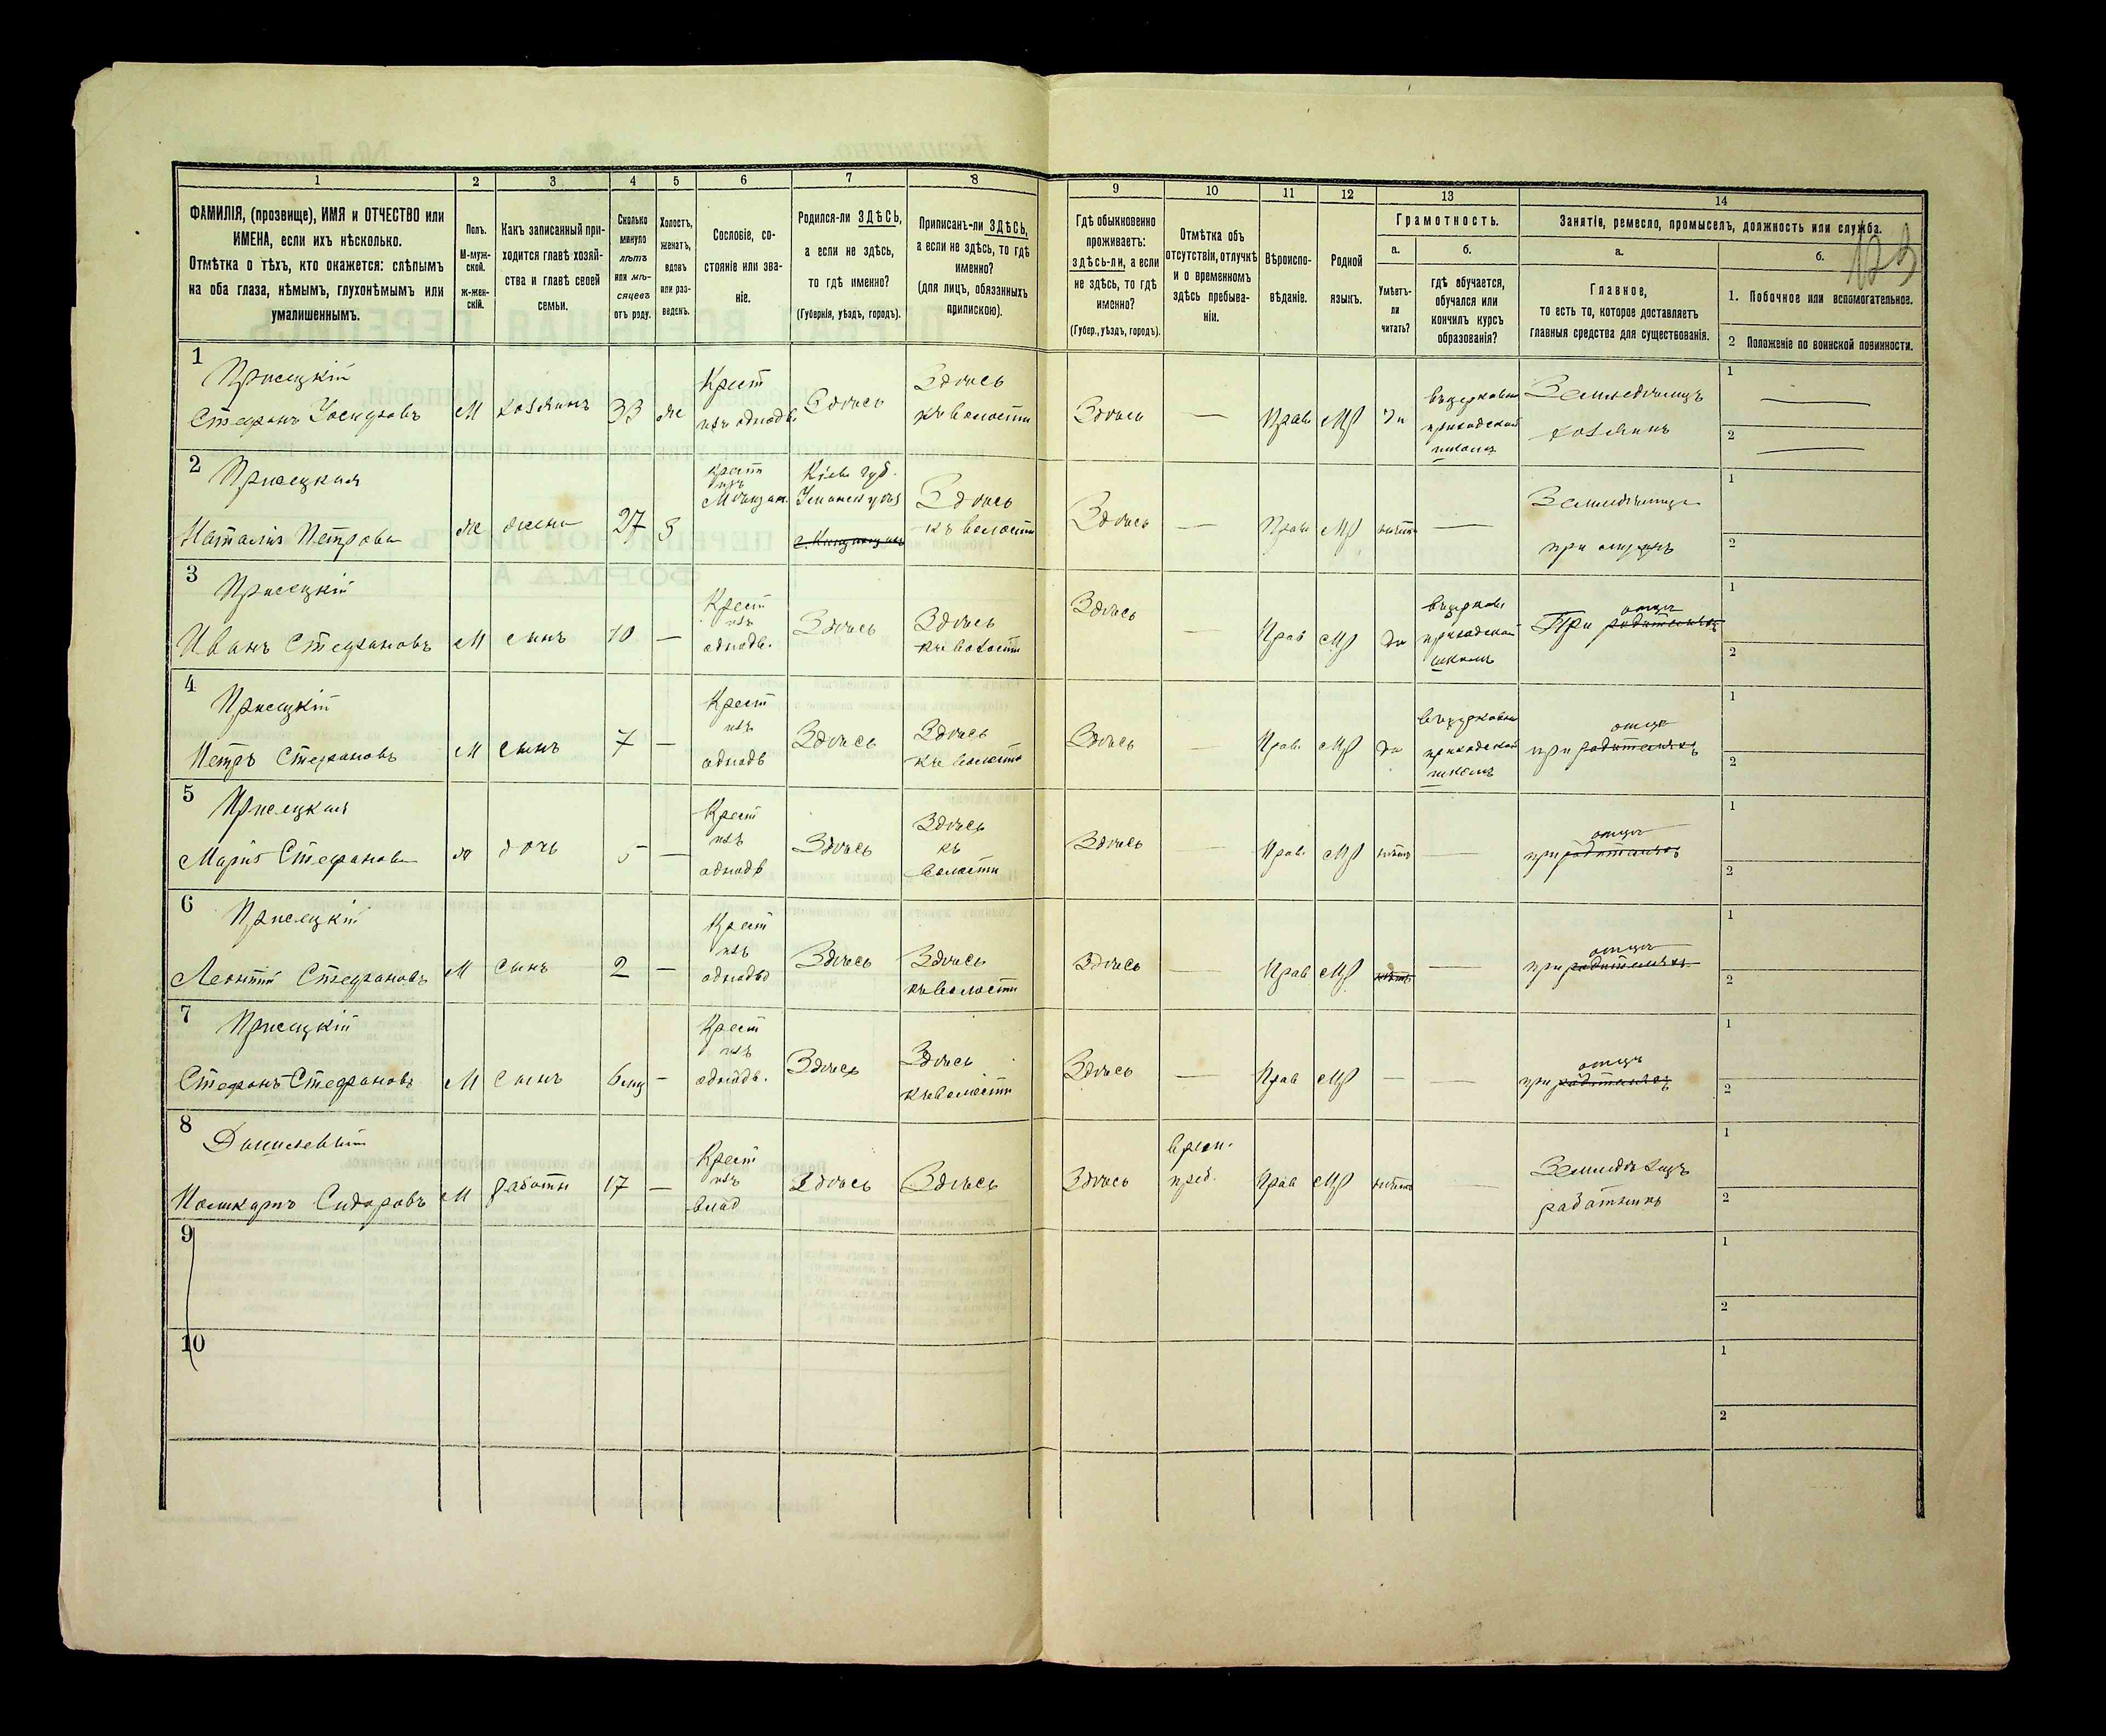 123
1
2
3
4
5
6
7
8
9
10
11
12
13
14
ФАМИЛІЯ, (прозвище), ИМЯ и ОТЧЕСТВО или
ИМЕНА, если ихъ нѣсколько.
Отмѣтка о тѣхъ, кто окажется: слѣпымъ
на оба глаза, нѣмымъ, глухонѣмымъ или
умалишеннымъ.
Полъ.
М-муж-
ской.
ж-жен-
скій.
Какъ записанный при-
ходится главѣ хозяй-
ства и главѣ своей
семьи.
Сколько
минуло
лѣтъ
или мѣ-
сяцевъ
отъ роду.
Холостъ,
женатъ,
вдовъ
или раз-
веденъ.
Сословіе, со-
стояніе или зва-
ніе.
Родился-ли ЗДѢСЬ,
а если не здѣсь,
то гдѣ именно?
(Губернія, уѣздъ, городъ).
Приписанъ-ли ЗДѢСЬ,
а если не здѣсь, то гдѣ
именно?
(для лицъ, обязанныхъ
припискою).
Гдѣ обыкновенно
проживаетъ:
здѣсь-ли, а если
не здѣсь, то гдѣ
именно?
(Губер., уѣздъ, городъ).
Отмѣтка объ
отсутствіи, отлучкѣ
и о временномъ
здѣсь пребыва-
ніи.
Вѣроиспо-
вѣданіе.
Родной
языкъ.
Грамотность.
а.
Умѣетъ-
ли
читать?
б.
гдѣ обучается,
обучался или
кончилъ курсъ
образованія?
Занятія, ремесло, промыселъ, должность или служба.
а.
Главное,
то есть то, которое доставляетъ
главныя средства для существованія.
б.
1. Побочное или вспомогательное.
2 Положеніе по воинской повинности.
1
Присяцкій
Стефанъ Иосифовъ
М
хозяинъ
33
же
Крест
изъ однодв.
Здѣсь
Здѣсь
къ волости
Здѣсь
—
Прав.
МР
да
въ церковно
приходской
школѣ
Земледѣлецъ
хозяинъ
1 —
2 —
2
Присяцкая
Наталія Петрова
же
жена
27
З
Крест
изъ
Мѣщан.
Кіев. губ.
Уманск уѣз
Здѣсь
къ волости
Здѣсь
—
Прав.
МР
нѣтъ
—
Земледѣлица
при мужѣ
1
2
3
Присяцкій
Иванъ Стефановъ
М
сынъ
10
—
Крест
изъ
однодв.
Здѣсь
Здѣсь
къ волости
Здѣсь
—
Прав
МР
да
въ церковн
приходской
школѣ
отцѣ
При родителяхъ
1
2
4
Присяцкій
Петръ Стефановъ
М
сынъ
7
—
Крест
изъ
однодв
Здѣсь
Здѣсь
къ волости
Здѣсь
—
Прав.
МР
да
въ церковно
приходской
школѣ
отцѣ
при родителяхъ
1
2
5
Присяцкая
Марія Стефанова
ж
дочь
5
—
Крест
изъ
однодв
Здѣсь
Здѣсь
къ
волости
Здѣсь
—
Прав.
МР
нѣтъ
—
отцѣ
при родителяхъ
1
2
6
Присяцкій
Леонтій Стефановъ
М
сынъ
2
—
Крест
изъ
однодв
Здѣсь
Здѣсь
къ волости
Здѣсь
—
Прав
МР
нѣтъ
—
отцѣ
при родителяхъ
1
2
7
Присяцкій
Стефанъ Стефановъ
М
сынъ
6 мц
—
Крест
изъ
однодв.
Здѣсь
Здѣсь
къ волости
Здѣсь
—
Прав
МР
—
—
отцѣ
при родителяхъ
1
2
8
Поликарпъ Сидоровъ
М
работн
17
—
Крест
изъ
влад
Здѣсь
Здѣсь
Здѣсь
врем.
преб.
Прав
МР
нѣтъ
—
Земледѣлецъ
работникъ
1
2
9
1
2
10
1
2